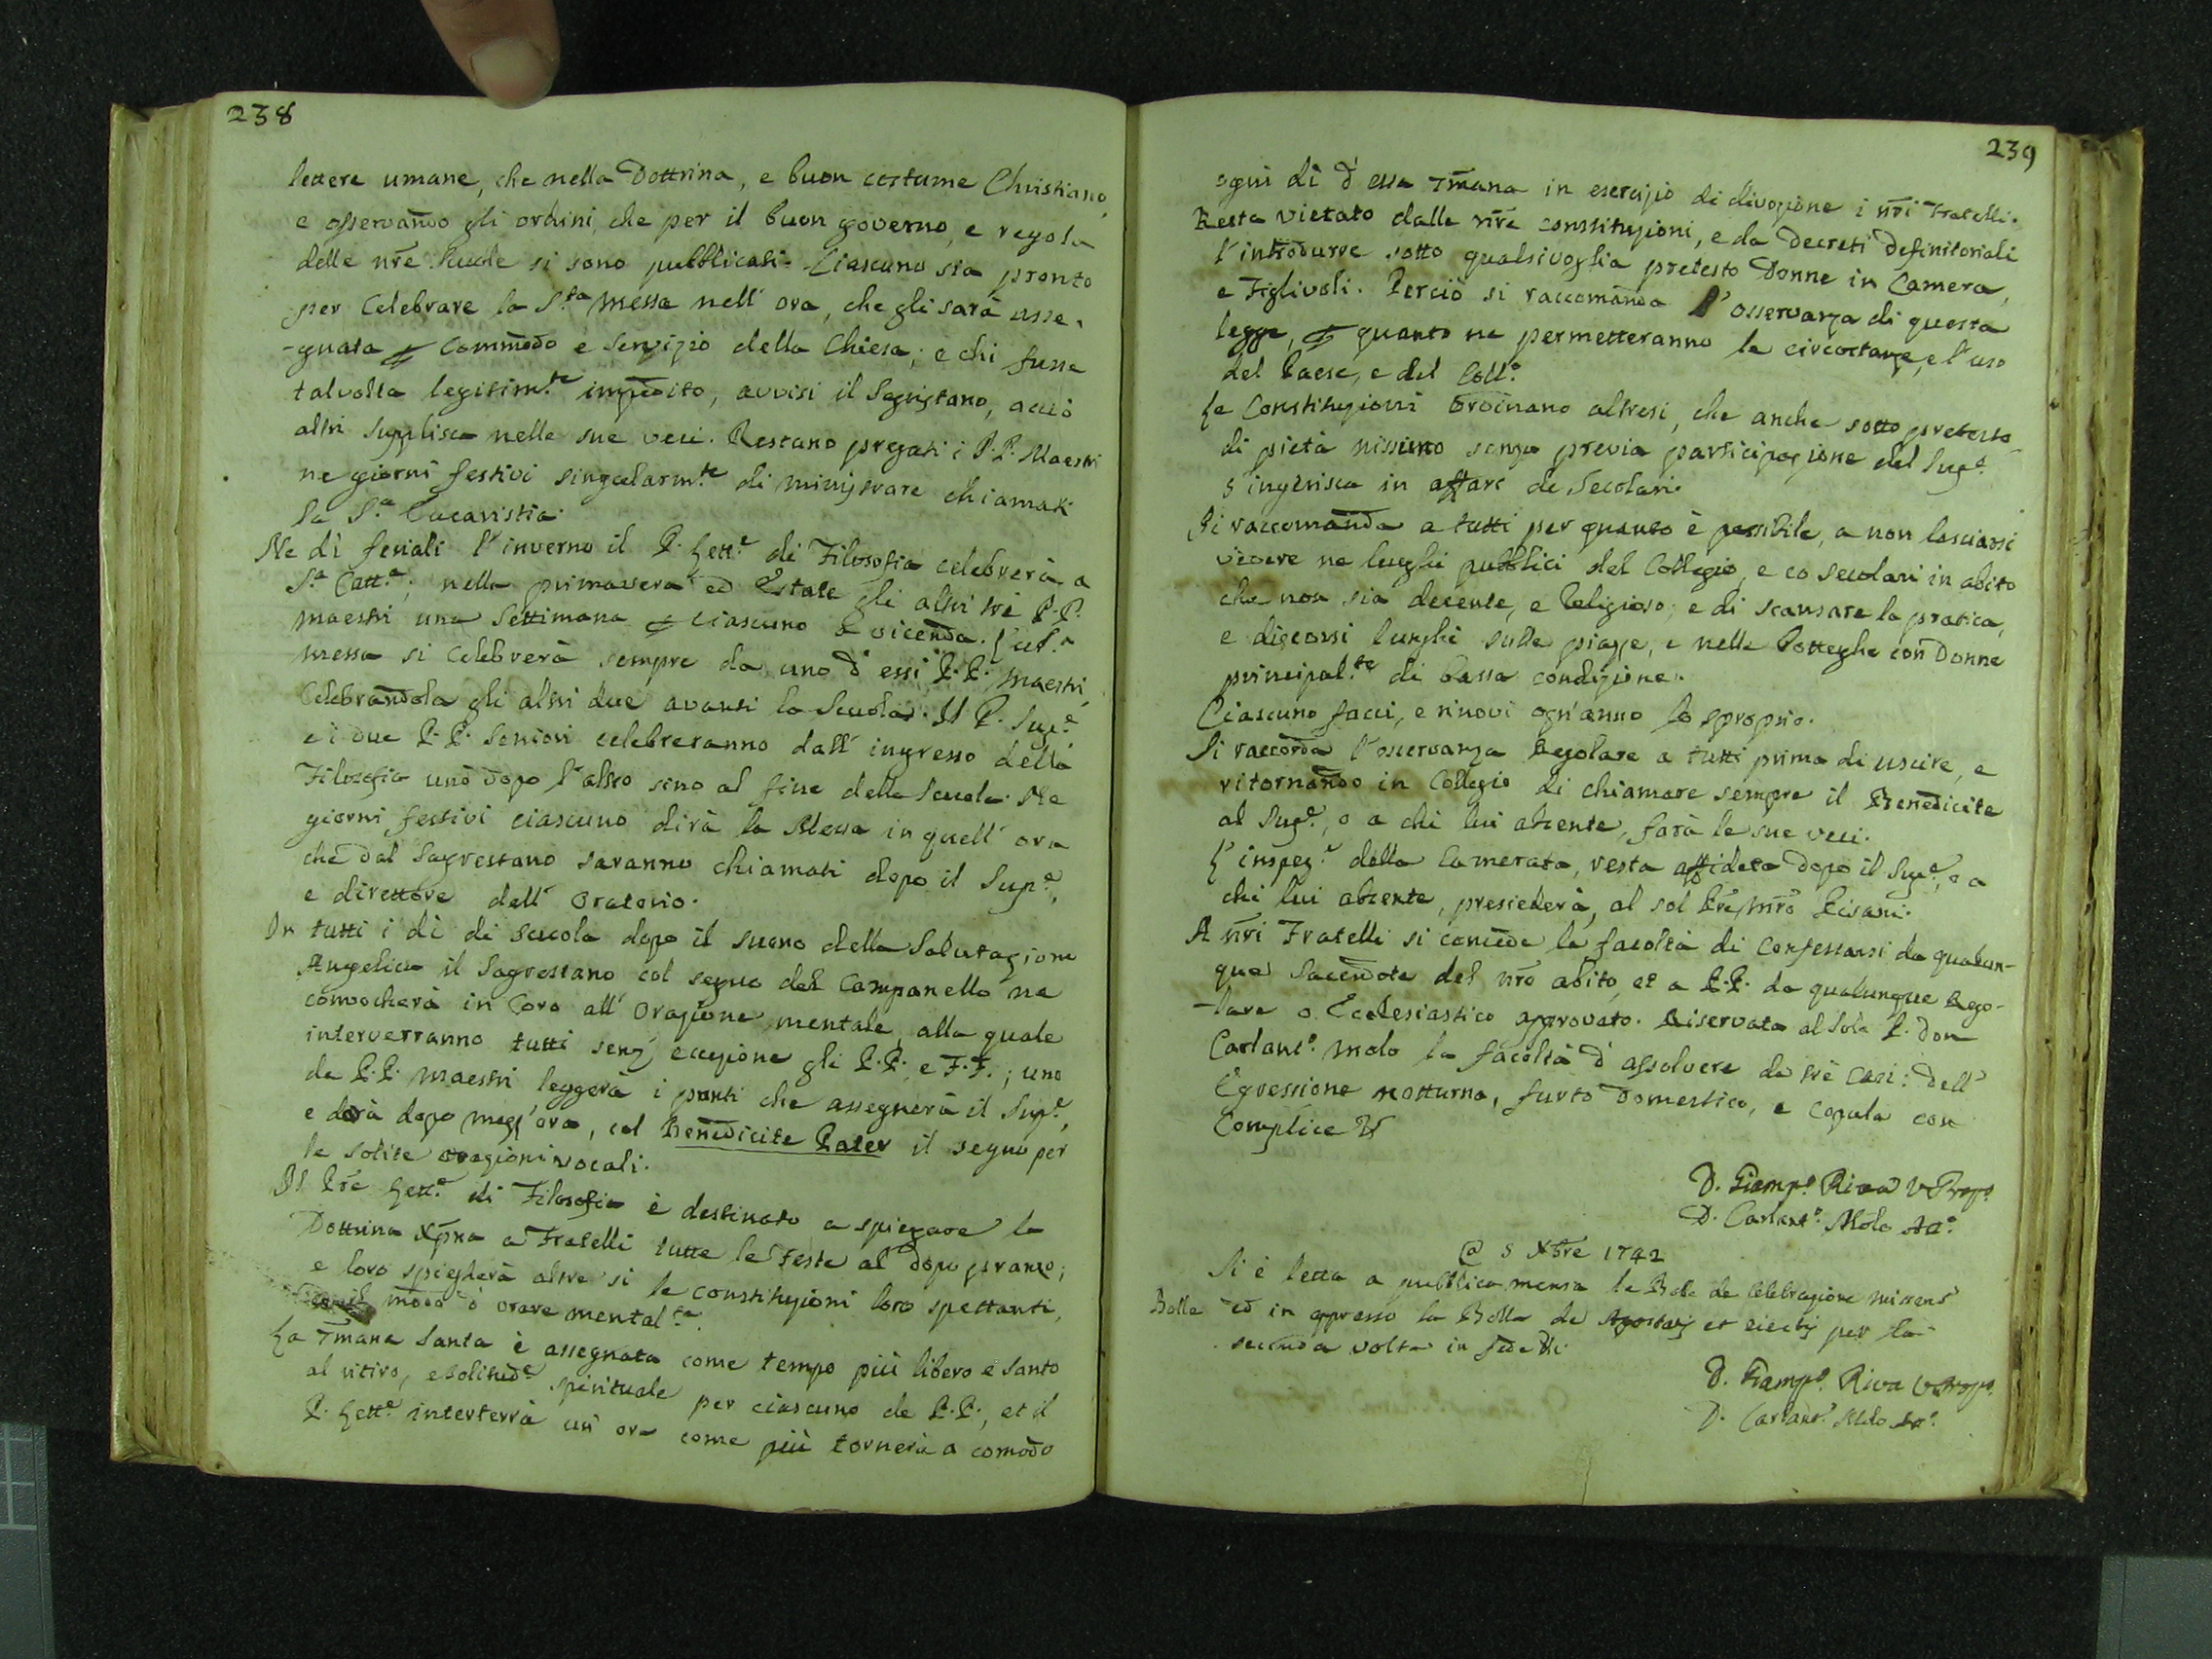 238
lettere umane, che nella Dottrina, e buon costume Christiano,
e osservando gli ordini, che per il buon governo, e regola
delle nr̃e Scuole si sono pubblicati. Ciascuno sia pronto
per Celebrare la S.ta Messa nell' ora, che gli sarà asse-
-gnata Commodo e Servizio della Chiesa; e chi fusse
talvolta legitim.te impedito, avvisi il Sagristano, acciò
altri supplisca nelle sue veci. Restano pregati i P.P. Maestri
ne giorni festivi singolarm.te di ministrare chiamati
la S.a Eucaristia.
Ne dì feriali l'inverno il P. Lett.e di Filosofia celebrerà a
S.a Catt.a; nella primavera ed Estate gli altri trè P.P.
maestri una Settimana ciascuno a vicenda. L'ult.a
messa si celebrerà sempre da uno d'essi P.P. Maestri,
Celebrandola gli altri due avanti la Scuola. Il P. Sup.e,
e i due P.P. Seniori celebreranno dall' ingresso della
Filosofia uno dopo l'altro sino al fine della Scuola. Ne
giorni festivi ciascuno dirà la Messa in quell' ora
che dal Sagrestano saranno chiamati dopo il Sup.e,
e direttore dell' Oratorio.
In tutti i dì di scuola dopo il suono della Salutazione
Angelica il Sagrestano col segno del Campanello ne
convocherà in Coro all' Orazione mentale, alla quale
interverranno tutti senz' eccezione gli P.P. e F.F.; uno
de P.P. Maestri leggerà i punti che assegnerà il Sup.e,
e darà dopo mezz'ora, col Benedicite Pater il segno per
le solite orazioni vocali.
Il Prẽ Lett.e di Filosofia è destinato a spiegare la
Dottrina Xp̃na a Fratelli tutte le Feste al dopo pranzo;
e loro spiegherà altre si le constituzioni loro spettanti,
il modo d'orare mental.te.
La 7m̃ana Santa è assegnata come tempo più libero e santo
al ritiro, e solitud.e spirituale per ciascuno de P.P., et il
P. Lett.e interterrà un' ora come più tornerà a comodo
239
ogni dì d'essa 7m̃ana in esercizio di divozione i nr̃i Fratelli.
Resta vietato dalle nr̃e constituzioni, e da Decreti Definitoriali
l'introdurre sotto qualsivoglia pretesto Donne in Camera,
e Figlivoli. Perciò si raccomanda l'osservanza di questa
legge, quanto ne permetteranno le circostanze, e l'uso
del Paese, e del Coll.o
Le Constituzioni ordinano altresi, che anche sotto pretesto
di pietà nissuno senza previa participazione del Sup.e
s'ingerisca in affare de Secolari.
Si raccomanda a tutti per quanto è possibile, a non lasciarsi
vedere ne luoghi pubblici del Collegio, e co secolari in abito
che non sia decente, e Religioso; e di scansare la pratica,
e discorsi lunghi sulle piazze, e nelle Botteghe con Donne
principal.te di bassa condizione.
Ciascuno facci, e rinovi ogn'anno lo sproprio.
Si raccorda l'osservanza Regolare a tutti prima di uscire, e
ritornando in Collegio di chiamare sempre il Benedicite
al Sup.e, o a chi lui absente, farà le sue veci.
L'inspez.e della Camerata, resta affidata dopo il Sup.e, o a
chi lui absente, presiederà, al sol Prẽ Mr̃o Pisani.
A nr̃i Fratelli si concede la facoltà di Confessarsi da qualun-
que Sacerdote del nr̃o abito, et a P.P. da qualunque Rego-
-lare o Ecclesiastico approvato. Riservata al Solo P. Don
Carlant.o Molo la facoltà d'assolvere da trè Casi: Dell'
Egressione notturna, furto Domestico, e Copula con
Complice
D. Giamp.o Riva V Prep.o
D. Carlant.o Molo At.o
@ 5 Xbr̃e 1742
Si è letta a pubblica mensa la Bolla de celebratione missarũ
Bolle ed in appresso la Bolla de Apostatis et eiectis per la
seconda volta in fede
D. Giamp.o Riva V Prep.o
D. Carlant.o Molo At.o